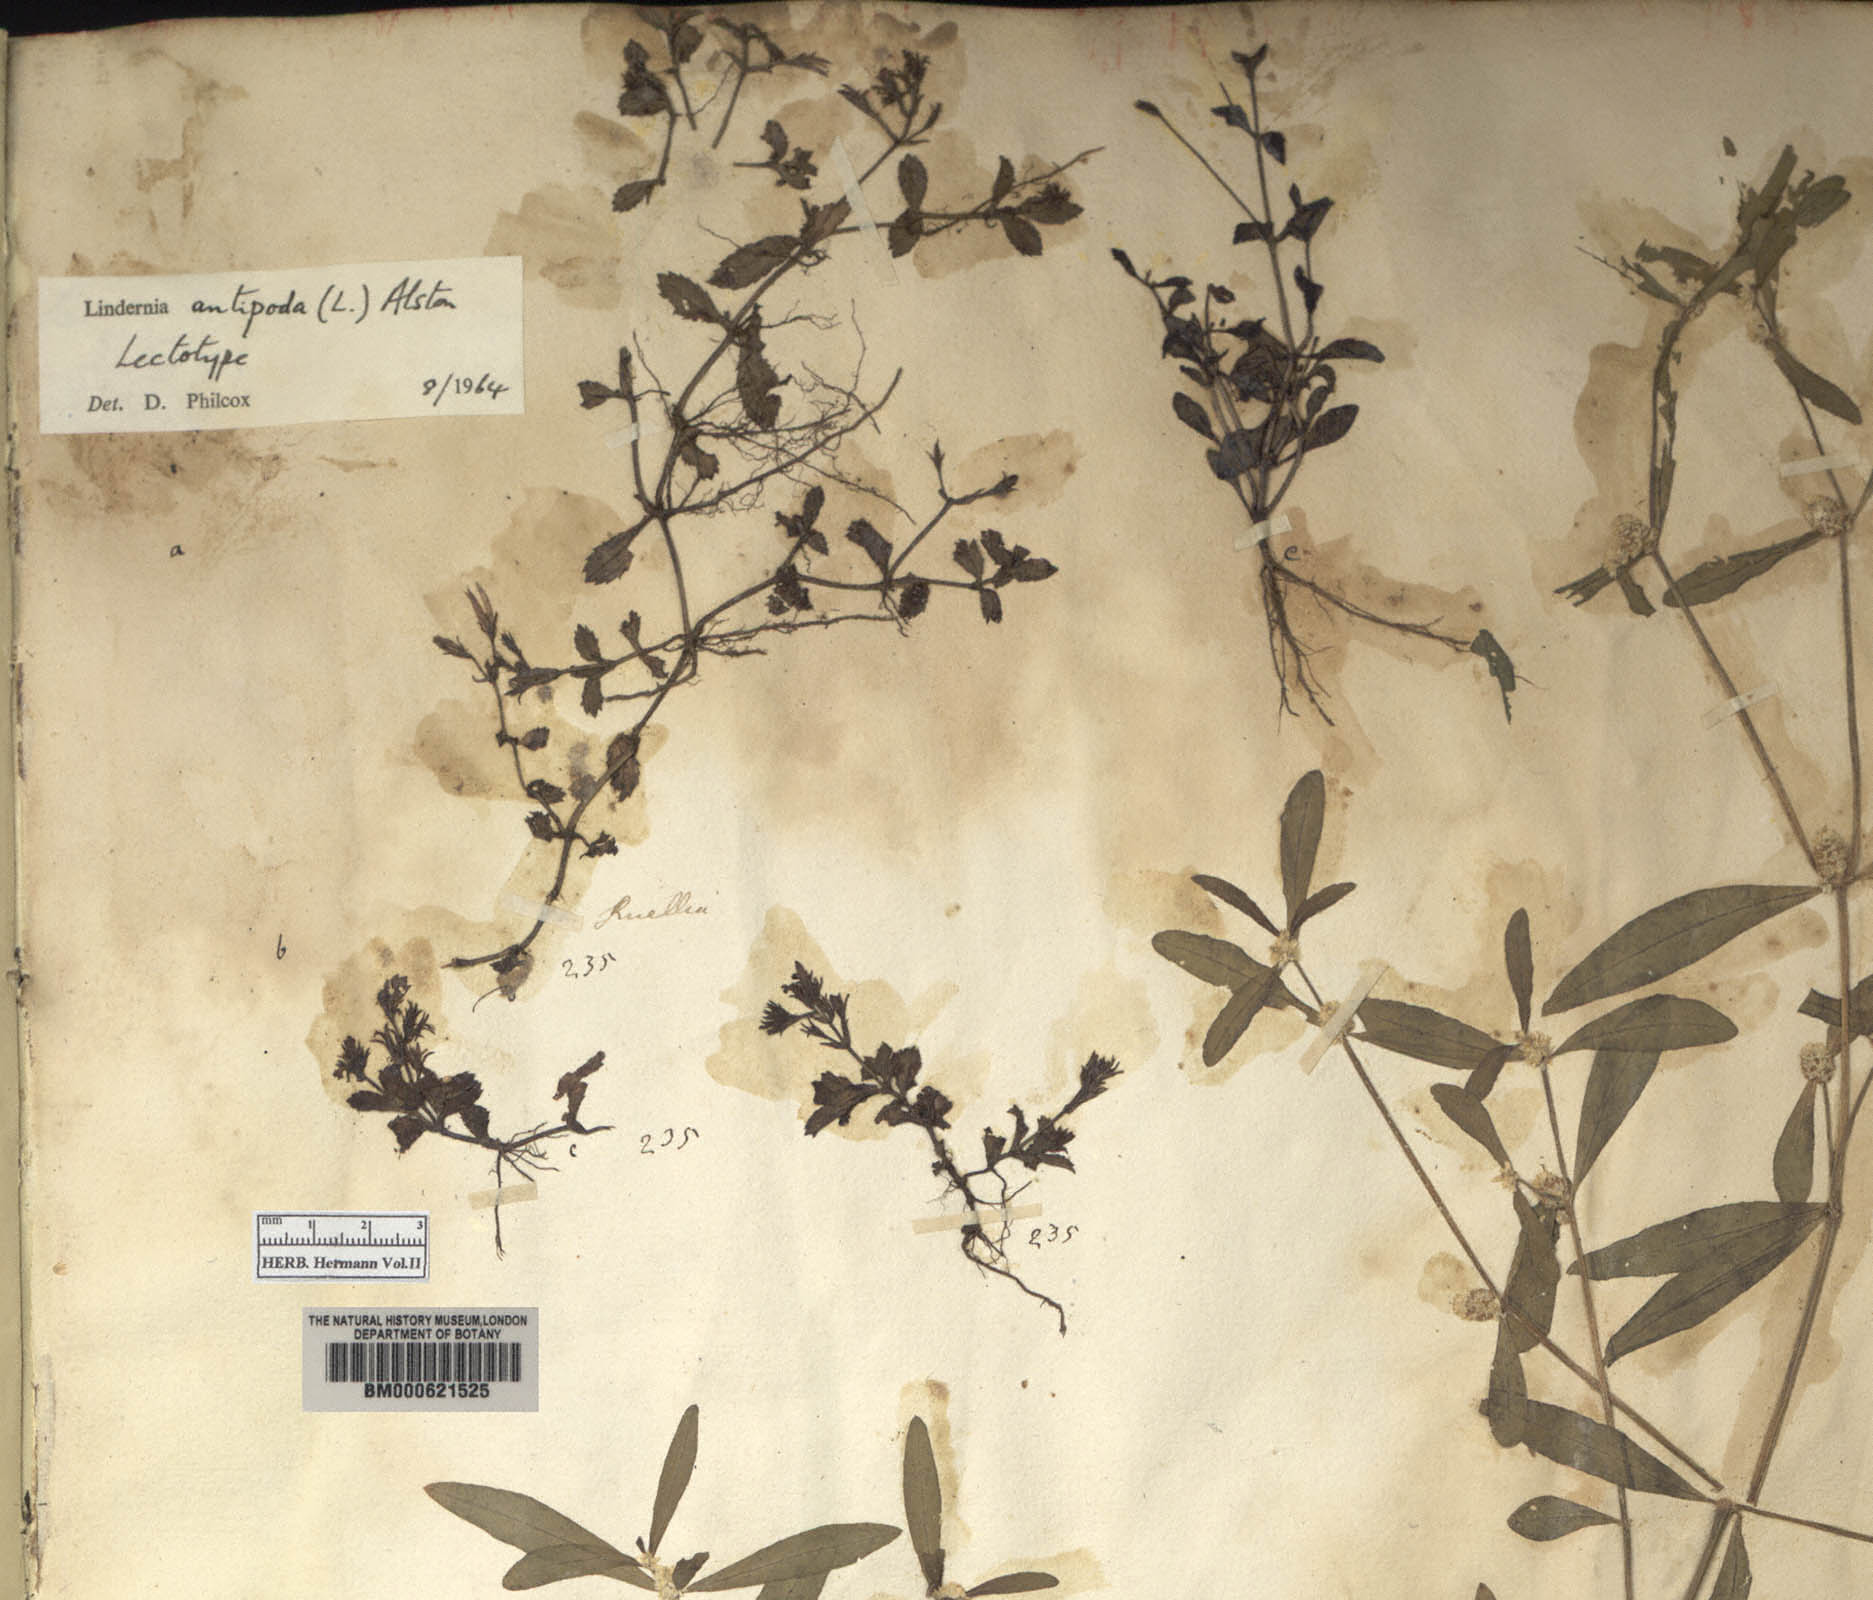 Lindernia antipoda (L.) Alston
Lectotype
Det. D. Philcox 8/1964
a
e
Ruellia
b
235
235
c
235
mm 1 2 3
HERB. Hermann Vol.II
THE NATURAL HISTORY MUSEUM,LONDON
DEPARTMENT OF BOTANY
BM000621525